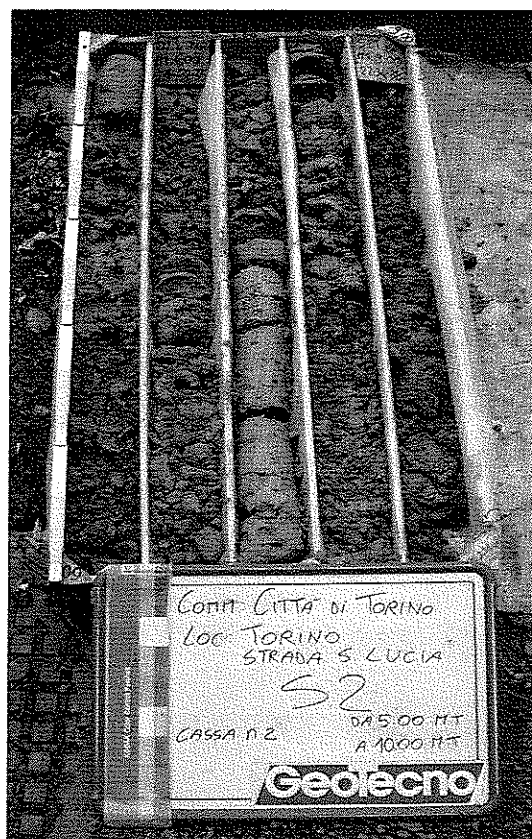 COMM. CITTÀ DI TORINO
LOC. TORINO
STRADA S. LUCIA
S2
CASSA n 2
DA 5.00 MT
A 10.00 MT
Geotecno